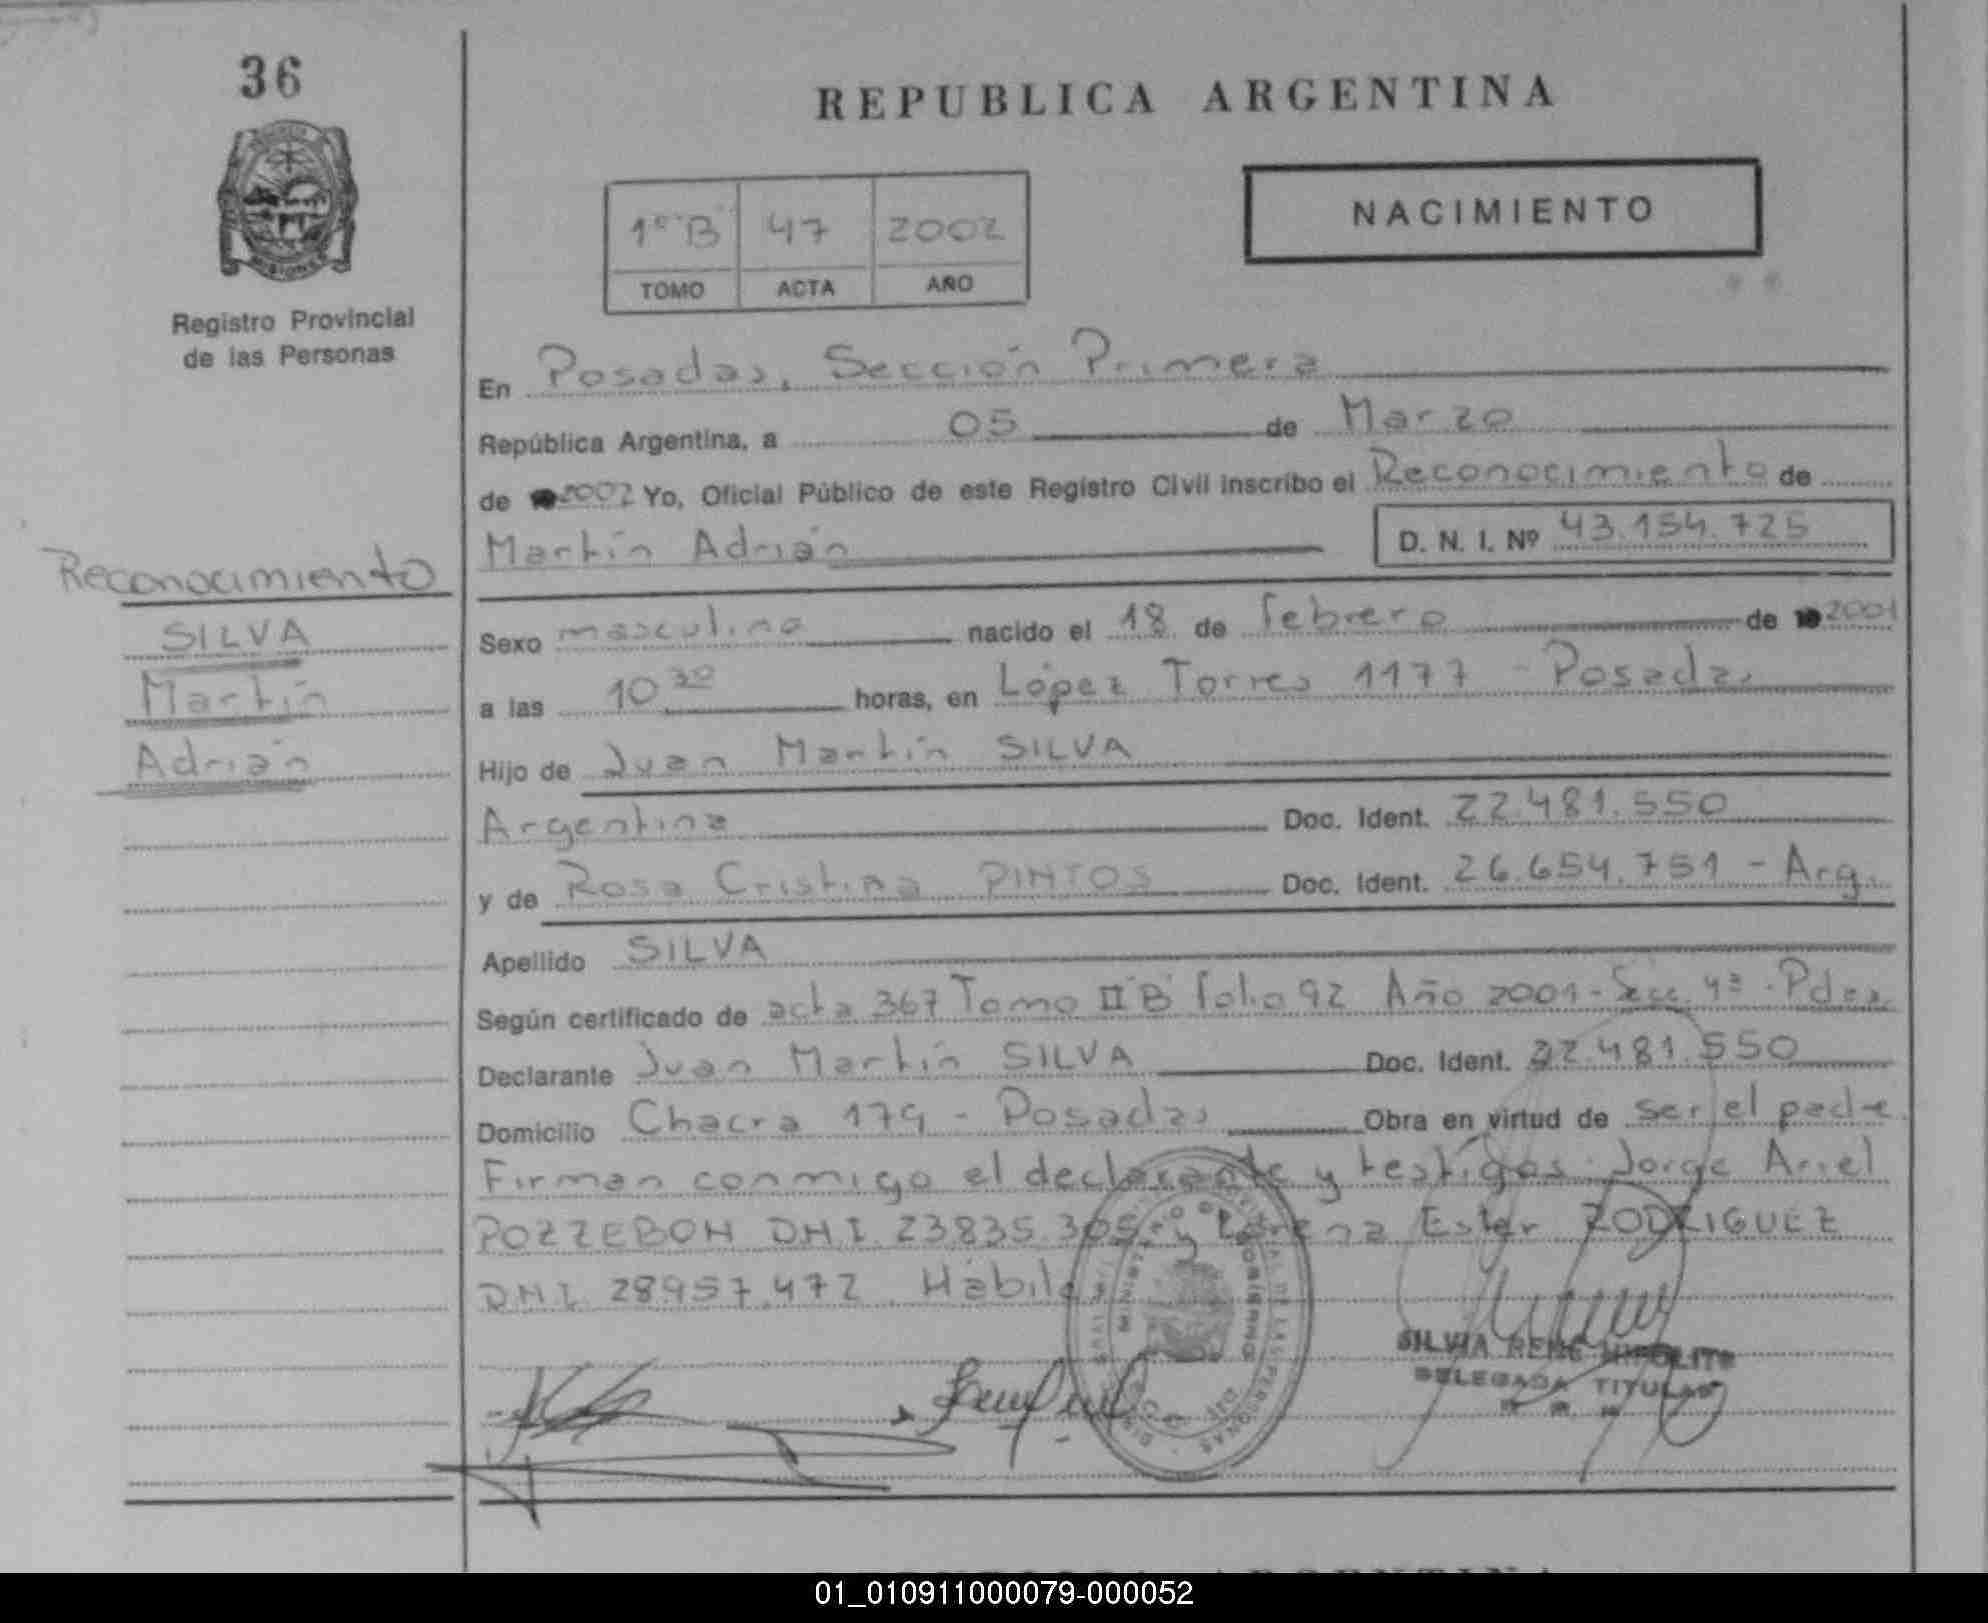 36
REPUBLICA ARGENTINA
NACIMIENTO
1º "B" 47 2002
TOMO ACTA AÑO
Registro Provincial
de las Personas
En Posadas, Sección Primera
República Argentina, a 05 de Marzo
de 2002 Yo, Oficial Público de este Registro Civil inscribo el Reconocimiento de
Martín Adrián D. N. I. Nº 43.154.725
Reconocimiento
SILVA
Martín
Adrián
Sexo masculino nacido el 18 de febrero de 2001
a las 10 30 horas, en López Torres 1177 - Posadas
Hijo de Juan Martín SILVA
Argentina Doc. Ident. 22.481.550
y de Rosa Cristina PINTOS Doc. Ident. 26.654.751 - Arg.
Apellido SILVA
Según certificado de acta 367 Tomo II "B" folio 92 Año 2001 - Secc. 4ª - Pdas
Declarante Juan Martín SILVA Doc. Ident. 22.481.550
Domicilio Chacra 179 - Posadas Obra en virtud de ser el padre.
Firman conmigo el declarante y testigos: Jorge Ariel
POZZEBON D.N.I. 23.835.305 y Lorena Ester RODRIGUEZ
D.N.I. 28.957.472. Hábiles
SILVIA RENE HIPOLITO
DELEGADA TITULAR
01_010911000079-000052